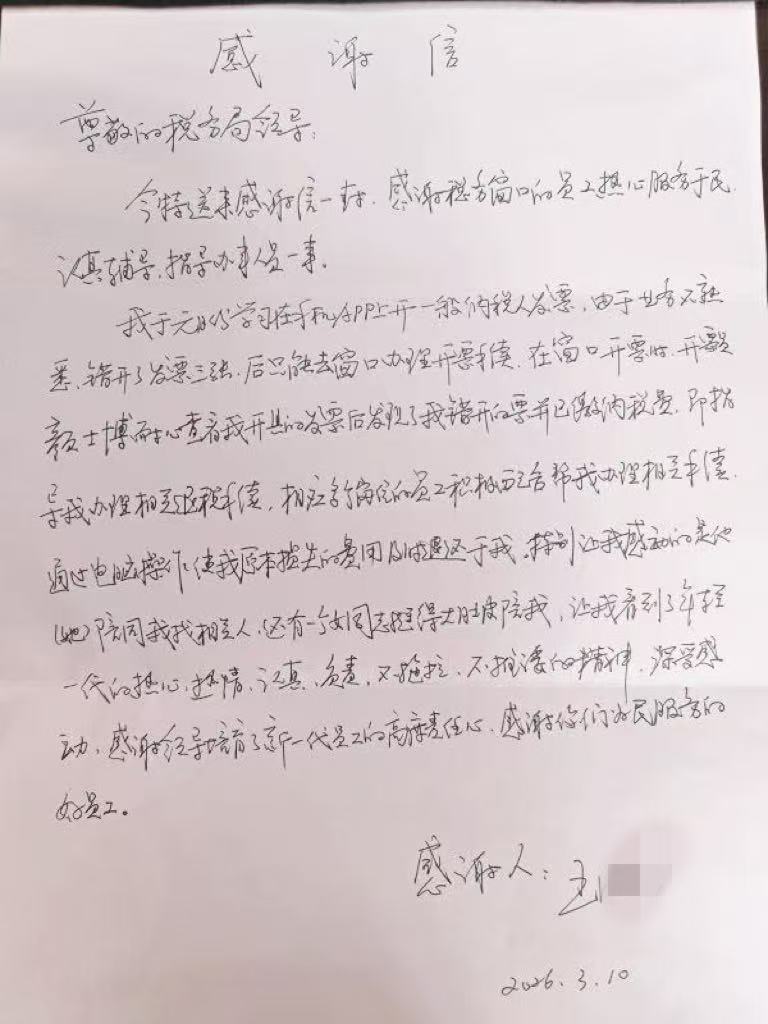 感谢信
尊敬的税务局领导:
今特送来感谢信一封,感谢税务窗口的员工热心服务于民,
认真辅导,指导办事人员一事。
我于元月份学习在手机APP上开一般纳税人发票,由于业务不熟
悉,错开了发票三张,后只能去窗口办理开票手续,在窗口开票时,开票员
士博耐心查看我开具的发票后发现了我错开的票并已缴纳税费,即指
导我办理相关退税手续,相应的员工积极配合帮我办理相关手续,
通过电脑操作,使我原本损失的费用及时退还于我,特别让我感动的是他
(她)陪同我找相关人,还有一个女同志挺着大肚皮陪我,让我看到了年轻
一代的热心、热情、认真、负责、不拖拉、不推诿的精神,深受感
动,感谢领导培育了新一代员工的高度责任心,感谢你们为民服务的
好员工。
感谢人:王
2026.3.10